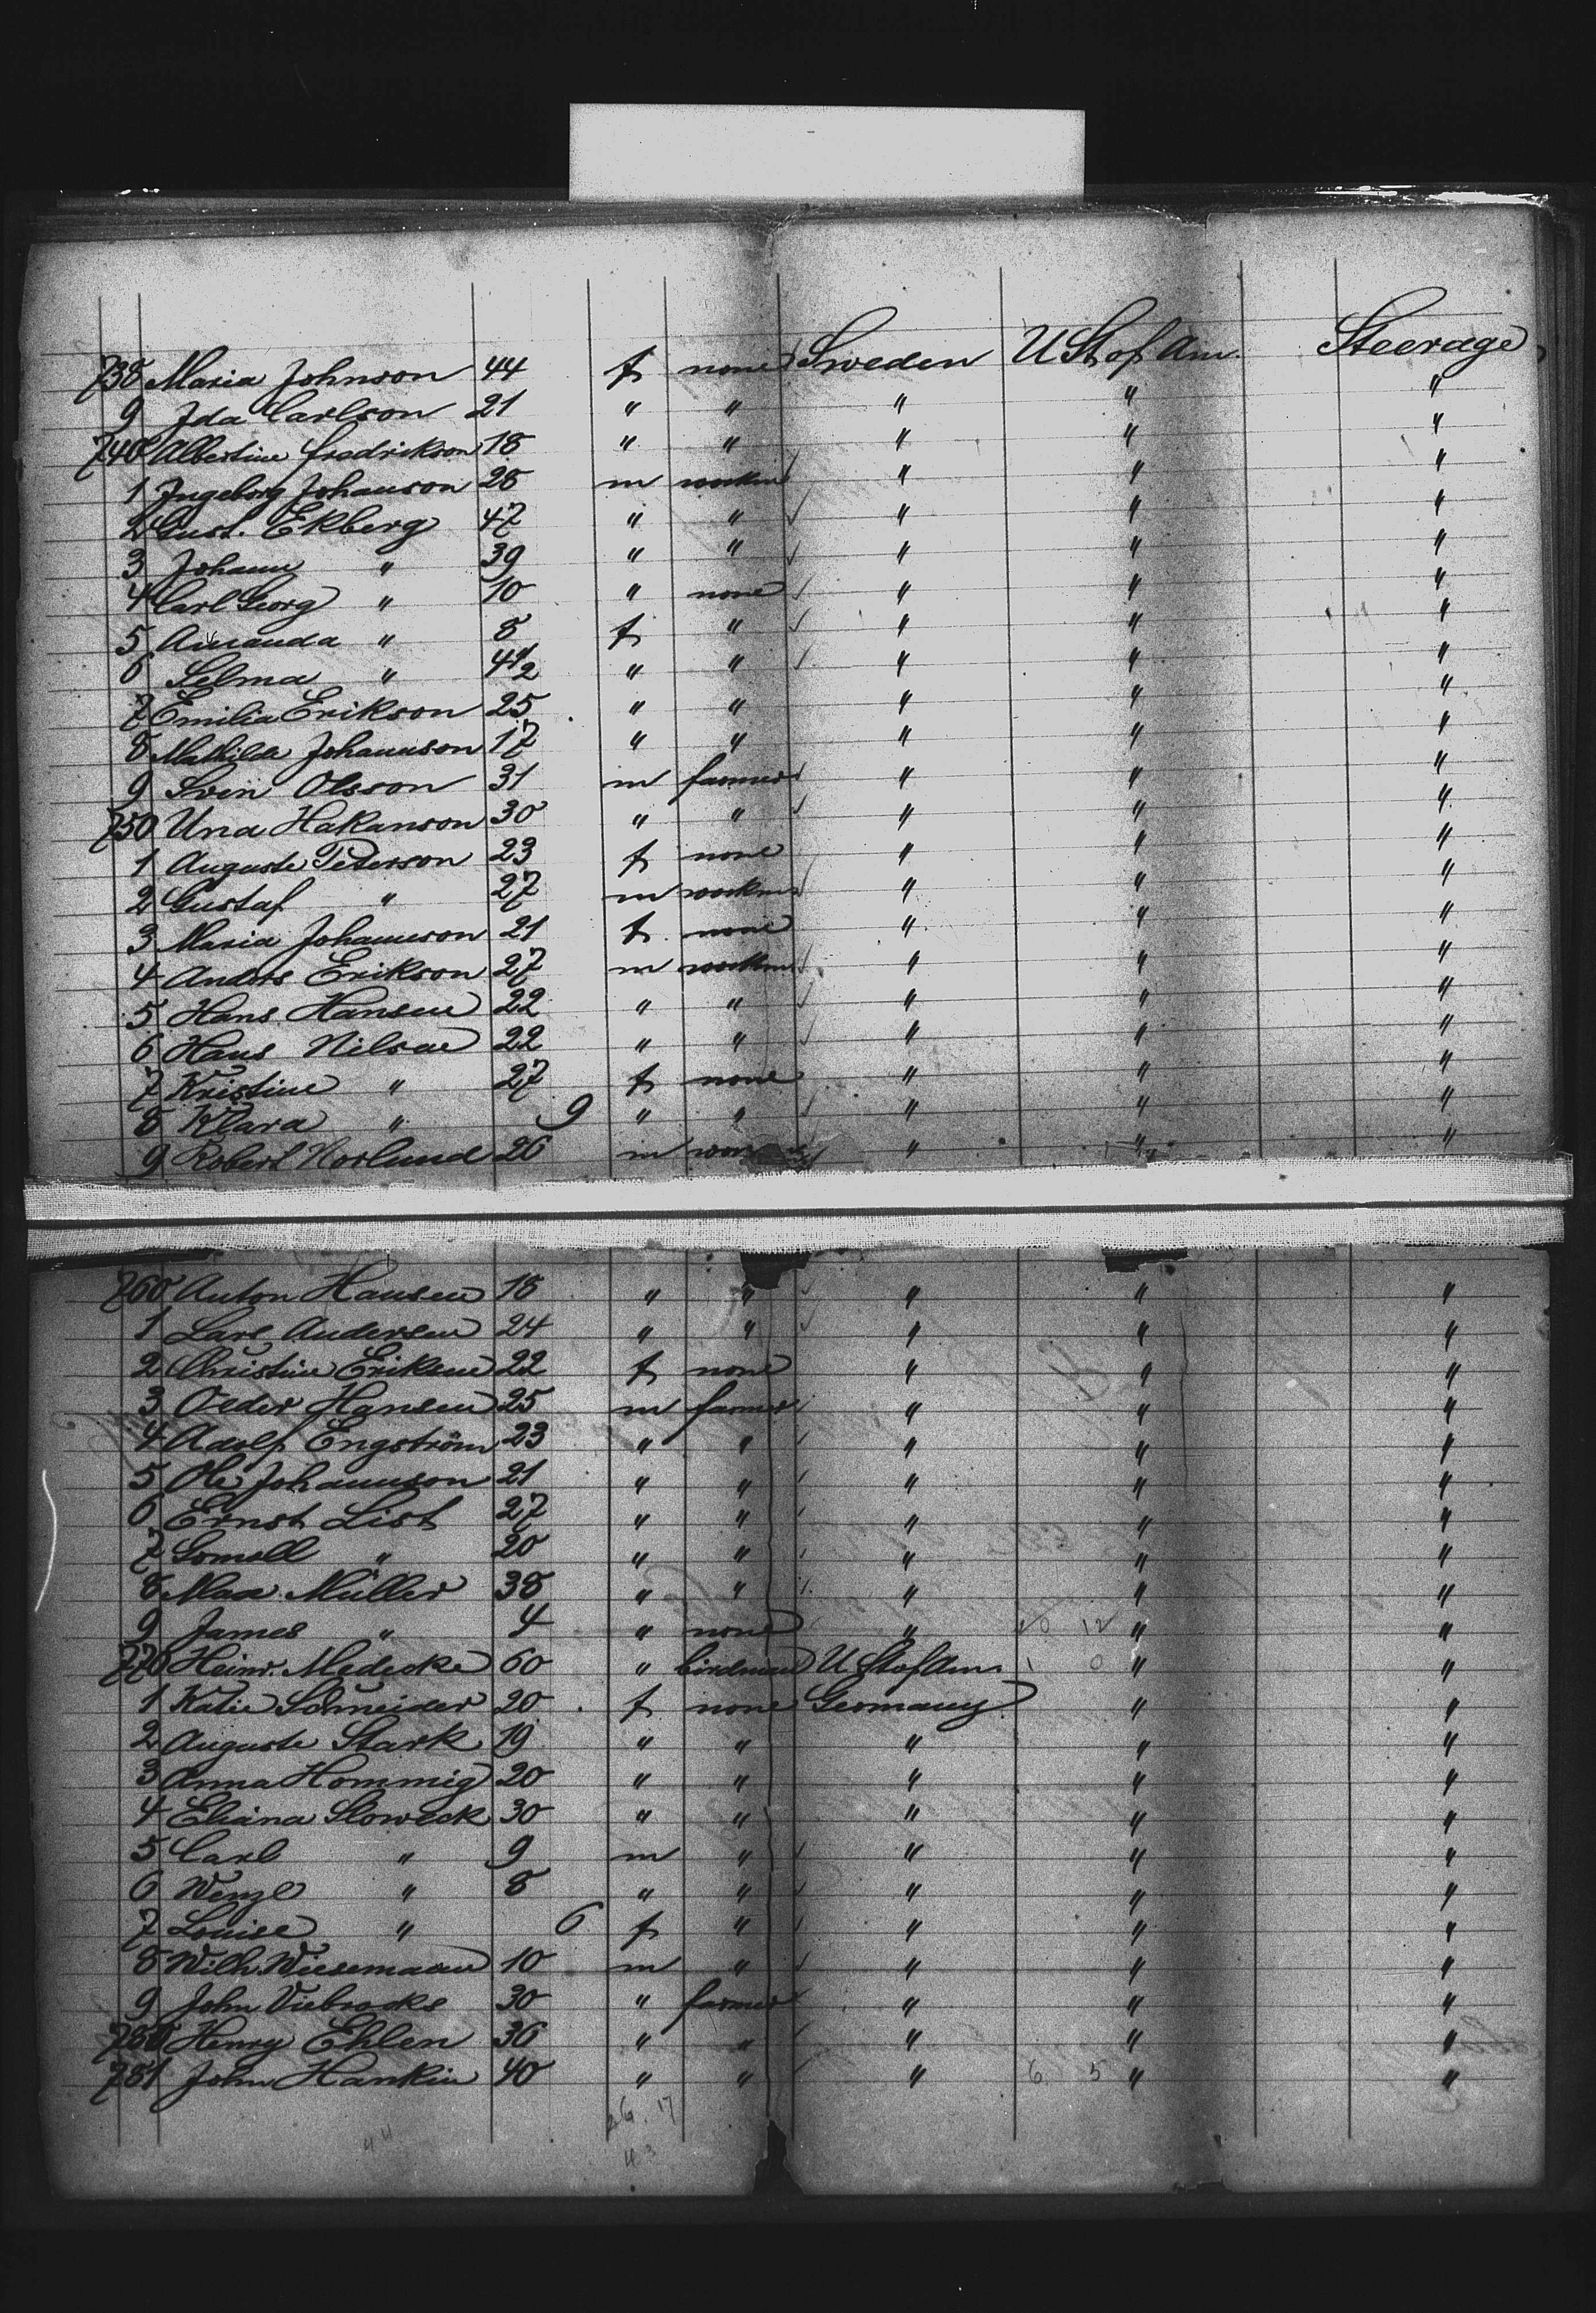 738 Maria Johnson 44 f none Sweden U St of Am. Steerage
9 Ida Carlson 21 " " " " "
740 Albertine Fredrikson 18 " " " " "
1 Ingeborg Johanson 28 m workm " " "
2 Gust. Ekberg 47 " " " " "
3 Johann " 39 " " " " "
4 Carl Georg " 10 " none " " "
5 Amanda " 8 f " " " "
6 Selma " 4 1/2 " " " " "
7 Emilia Erikson 25 " " " " "
8 Mathilde Johannson 17 " " " " "
9 Sven Olsson 31 m farmer " " "
750 Una Hakanson 30 " " " " "
1 Auguste Peterson 23 f none " " "
2 Gustaf " 27 m workm " " "
3 Maria Johannson 21 f none " " "
4 Anders Erikson 27 m workm " " "
5 Hans Hansen 22 " " " " "
6 Hans Nilsen 22 " " " " "
7 Kristine " 27 f none " " "
8 Klara " 9 " " " " "
9 Robert Norlund 26 m " " "
760 Anton Hansen 18 " " " " "
1 Lars Andersen 24 " " " " "
2 Christine Eriksen 22 f none " " "
3 Peder Hansen 25 m farmer " " "
4 Adolf Engström 23 " " " " "
5 Ole Johannson 21 " " " " "
6 Ernst List 27 " " " " "
7 " 20 " " " " "
8 Max Müller 38 " " " " "
9 James " 4 " none " 12 " "
770 Heinr. Medecke 60 " birdman U St of Am. 1 0 " "
1 Katie Schneider 20 f none Germany " "
2 Auguste Stark 19 " " " " "
3 Anna Hommig 20 " " " " "
4 Eliana Sloweck 30 " " " " "
5 Carl " 9 m " " " "
6 Wenzl " 8 " " " " "
7 Louise " 6 f " " " "
8 Wilh. Wiesemann 10 m " " " "
9 John Viebrocks 30 " farmer " " "
780 Henry Ehlen 36 " " " " "
781 John Hankin 40 " " " 6 5 " "
26. 17
44
43